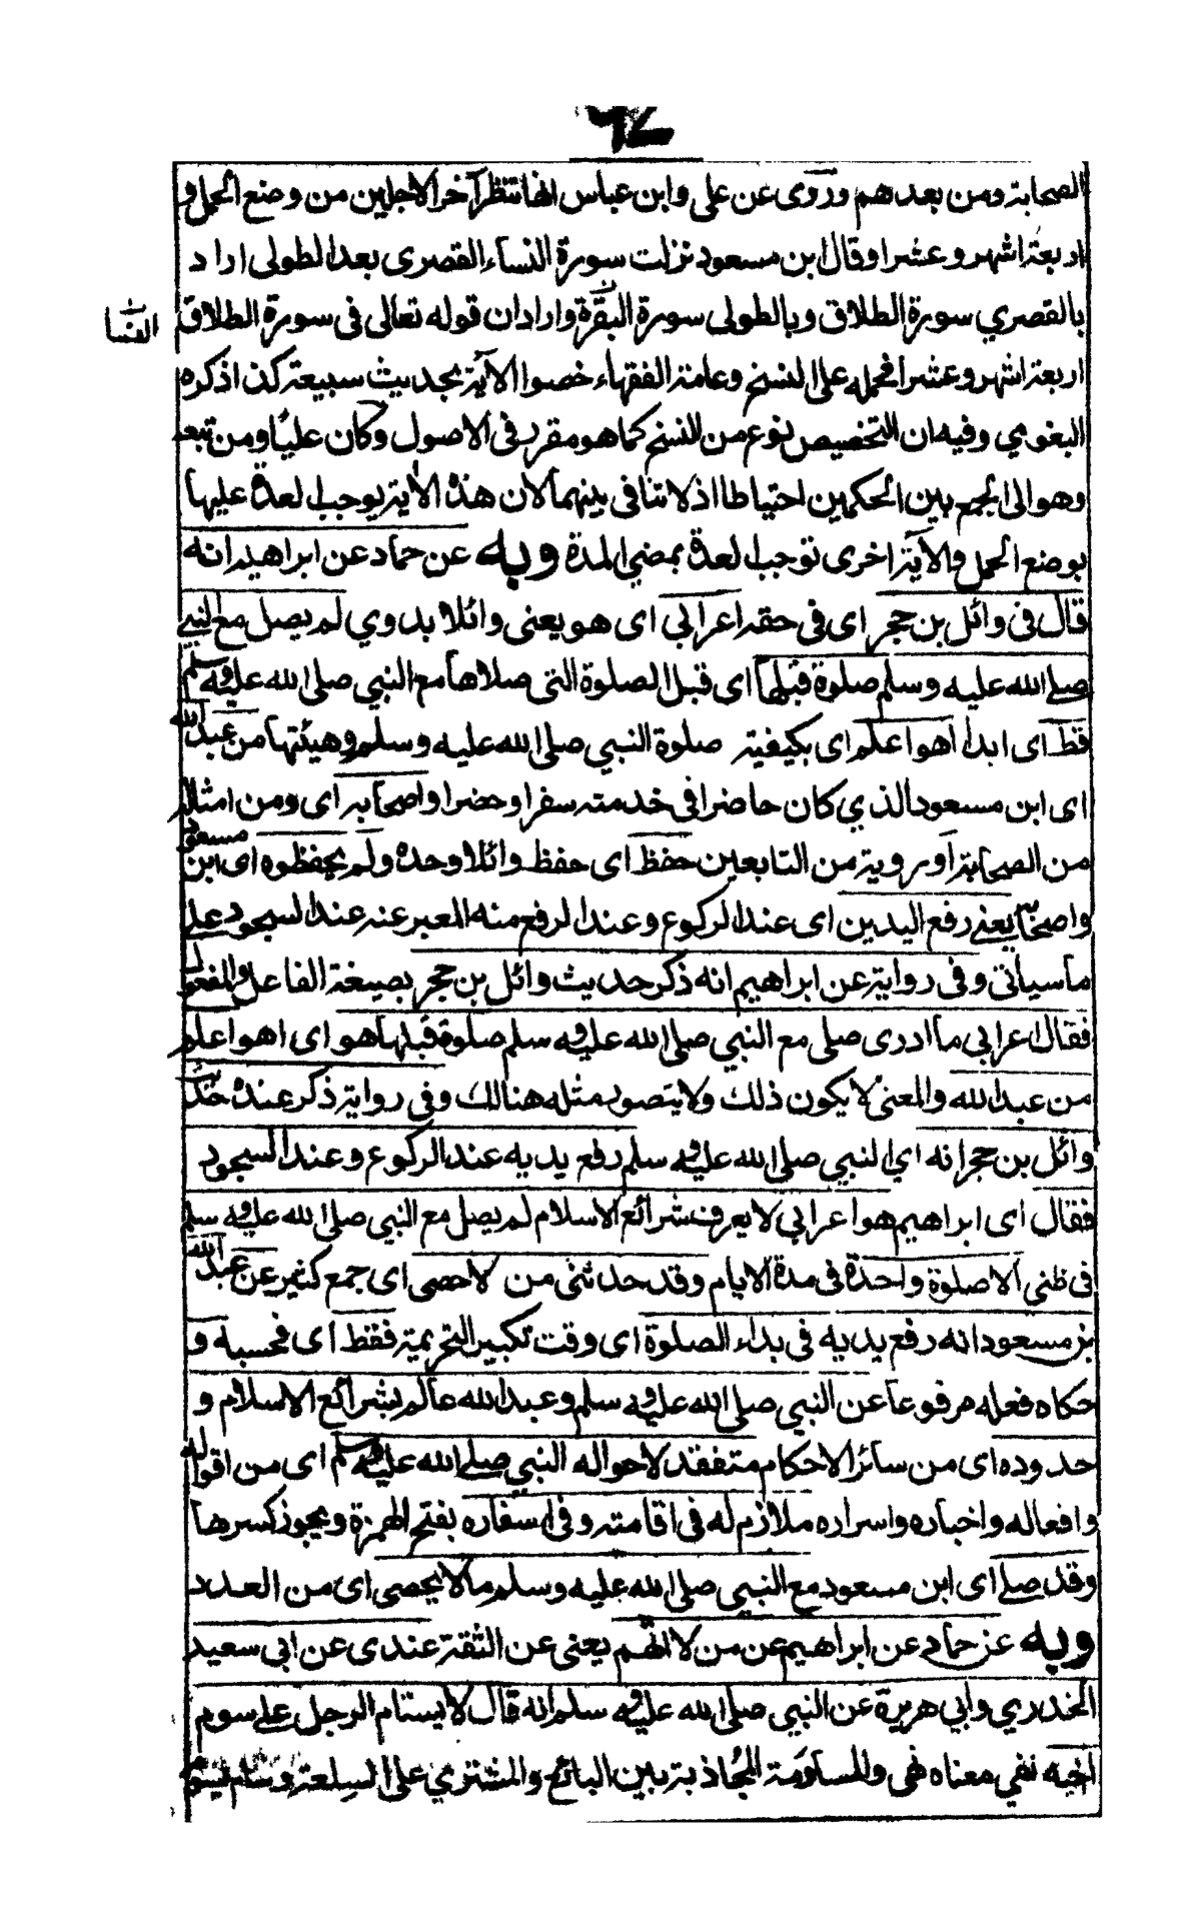 ٦٤
الصحابة ومن بعدهم وروى عن على وابن عباس انها تنتظر آخر الاجلين من وضع الحمل و
اربعة اشهر وعشرا وقال ابن مسعود نزلت سورة النساء القصرى بعد الطولى اراد
بالقصري سورة الطلاق وبالطولى سورة البقرة واراد ان قوله تعالى فى سورة الطلاق
اربعة اشهر وعشرا فحمله على النسخ وعامة الفقهاء خصوا الآية بحديث سبيعة كذا ذكره
البغوي وفيه ان التخصيص نوع من النسخ كما هو مقرر فى الاصول وكان عليا ومن تبعه
وهو الى الجمع بين الحكمين احتياطا اذ لا تنافى بينهما لان هذه الآية يوجب العدة عليها
بوضع الحمل والآية اخرى توجب العدة بمضي المدة وبه عن حماد عن ابراهيم انه
قال فى وائل بن حجر اى فى حقه اعرابي اى هو يعنى وائلا بدوي لم يصل مع النبى
صلى الله عليه وسلم صلوة قبلها اى قبل الصلوة التى صلاها مع النبي صلى الله عليه وسلم
قط اى ابدا اهو اعلم اى بكيفية صلوة النبي صلى الله عليه وسلم وهيئتها من عبد الله
اى ابن مسعود الذي كان حاضرا فى خدمته سفرا وحضرا واصحابه اى ومن امثاله
من الصحابة او روية من التابعين حفظ اى حفظ وائلا وحده ولم يحفظوه اى ابن مسعود
واصحابه يعنى رفع اليدين اى عند الركوع وعند الرفع منه المعبر عنه عند السجود على
ما سيأتى وفى رواية عن ابراهيم انه ذكر حديث وائل بن حجر بصيغة الفاعل والمفعول
فقال اعرابي ما ادرى صلى مع النبي صلى الله عليه وسلم صلوة قبلها هو اى اهو اعلم
من عبد الله والمعنى لا يكون ذلك ولا يتصور مثله هنالك وفى رواية ذكر عنده حديث
وائل بن حجر انه اي النبي صلى الله عليه وسلم رفع يديه عند الركوع وعند السجود
فقال اى ابراهيم هو اعرابي لا يعرف شرائع الاسلام لم يصل مع النبي صلى الله عليه وسلم
فى ظنى الا صلوة واحدة فى مدة الايام وقد حدثنى من لا احصى اى جمع كثير عن عبد الله
بن مسعود انه رفع يديه فى بداء الصلوة اى وقت تكبير التحريمة فقط اى فحسبه و
حكاه فعله مرفوعا عن النبي صلى الله عليه وسلم وعبد الله عالم بشرائع الاسلام و
حدوده اى من سائر الاحكام متفقد لاحواله النبي صلى الله عليه وسلم اى من اقواله
وافعاله واخباره واسراره ملازم له فى اقامته وفى اسفاره بفتح الهمزة ويجوز كسرها
وقد صلى اى ابن مسعود مع النبي صلى الله عليه وسلم ما لا يحصى اى من العدد
وبه عن حماد عن ابراهيم عن من لا اتهم يعنى عن الثقة عندى عن ابى سعيد
الخدري وابي هريرة عن النبي صلى الله عليه وسلم انه قال لا يستام الرجل على سوم
اخيه نفي معناه نهى والمساومة المجاذبة بين البائع والمشتري على السلعة